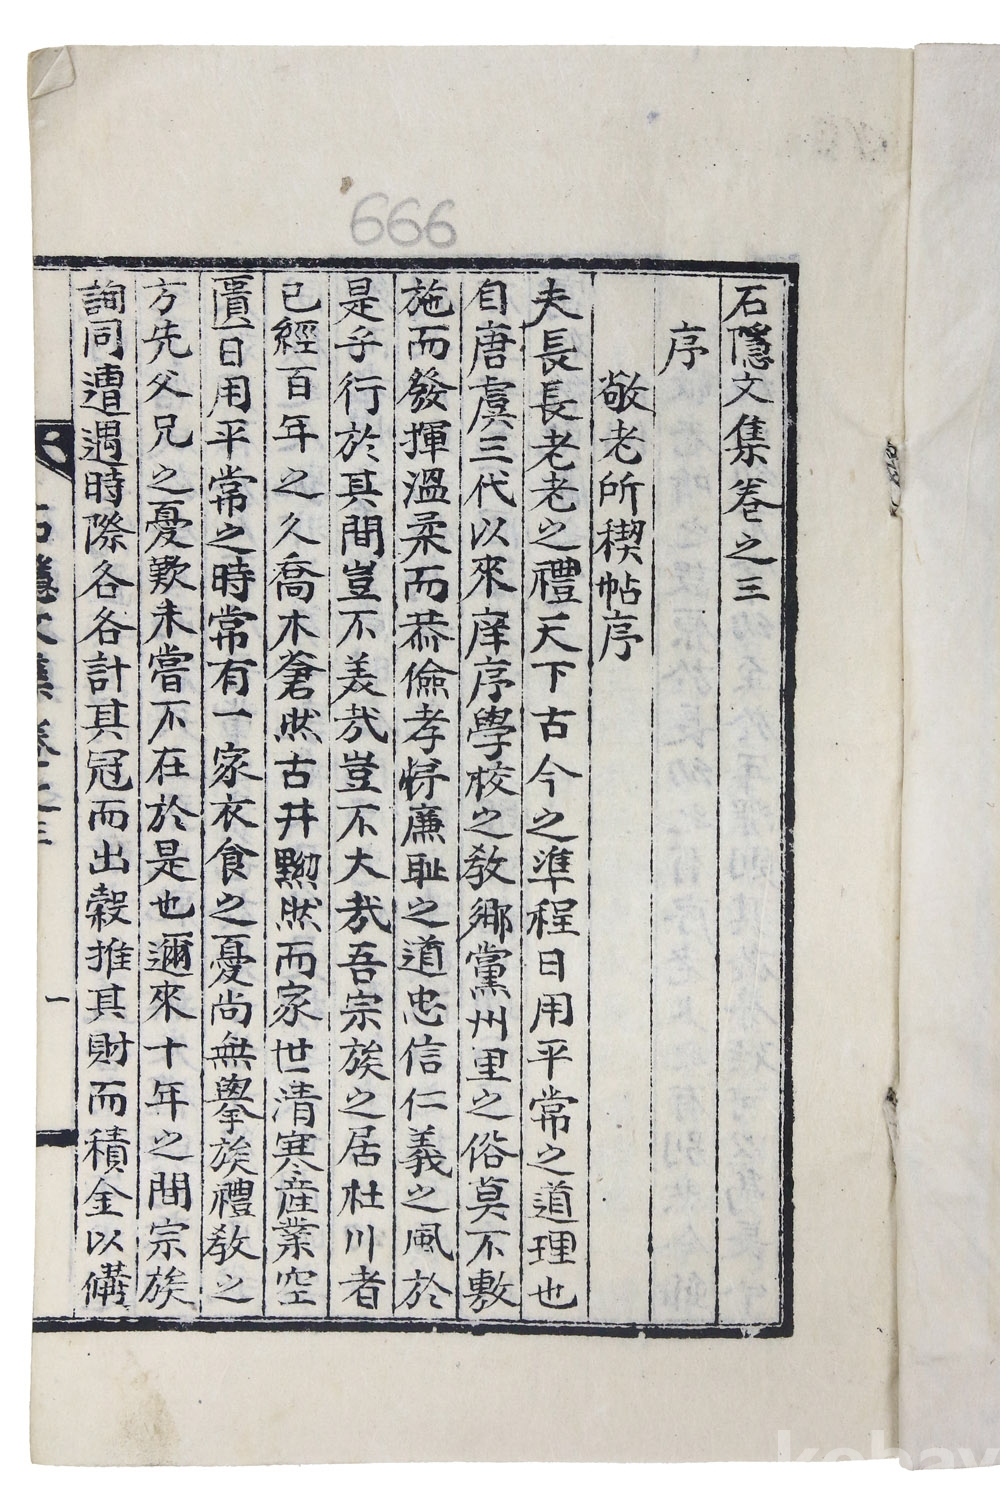 666
石隱文集卷之三
序
敬老所稧帖序
夫長長老老之禮天下古今之準程日用平常之道理也
自唐虞三代以來庠序學校之敎鄉黨州里之俗莫不敷
施而發揮溫柔而恭儉孝悌廉耻之道忠信仁義之風於
是乎行於其間豈不美㦲豈不大㦲吾宗族之居杜川者
已經百年之久喬木蒼然古井黝然而家世淸寒產業空
匱日用平常之時常有一家衣食之憂尙無擧族禮敎之
方先父兄之憂歎未嘗不在於是也邇來十年之間宗族
詢同遭遇時際各各計其冠而出穀推其財而積金以備
石隱文集卷之三
一
kobay